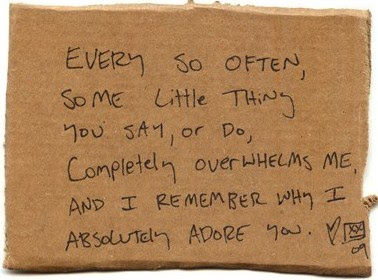 EVERY SO OFTEN,
SOME LITTLE THING
YOU SAY, OR DO,
COMPLETELY OVERWHELMS ME,
AND I REMEMBER WHY I
ABSOLUTELY ADORE YOU. ♡
09